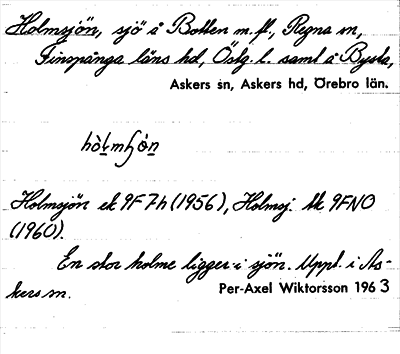 Holmsjön, sjö å Botten m. fl., Regna sn,
Finspånga läns hd, Östg. l. samt å Bysta,
Askers sn, Askers hd, Örebro län.
Holmsjön ek 9F7h (1956), Holmsj. tk 9FNO
(1960).
En stor holme ligger i sjön. Uppt. i As-
kers sn.
Per-Axel Wiktorsson 1963